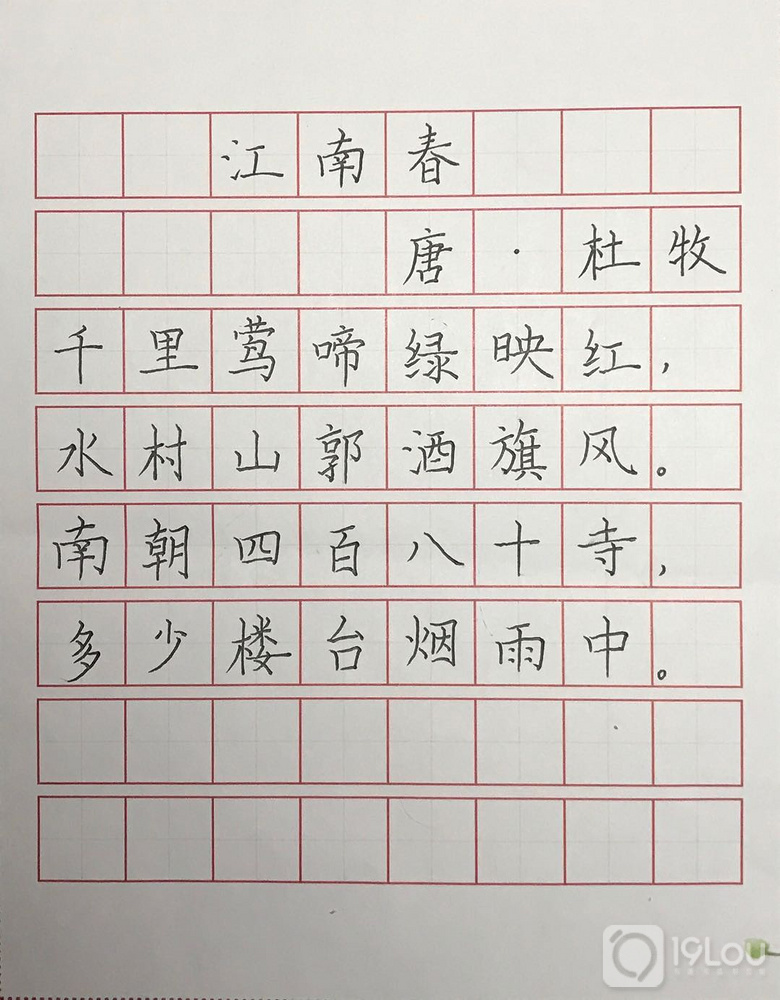 江南春
唐·杜牧
千里莺啼绿映红，
水村山郭酒旗风。
南朝四百八十寺，
多少楼台烟雨中。
19Lou